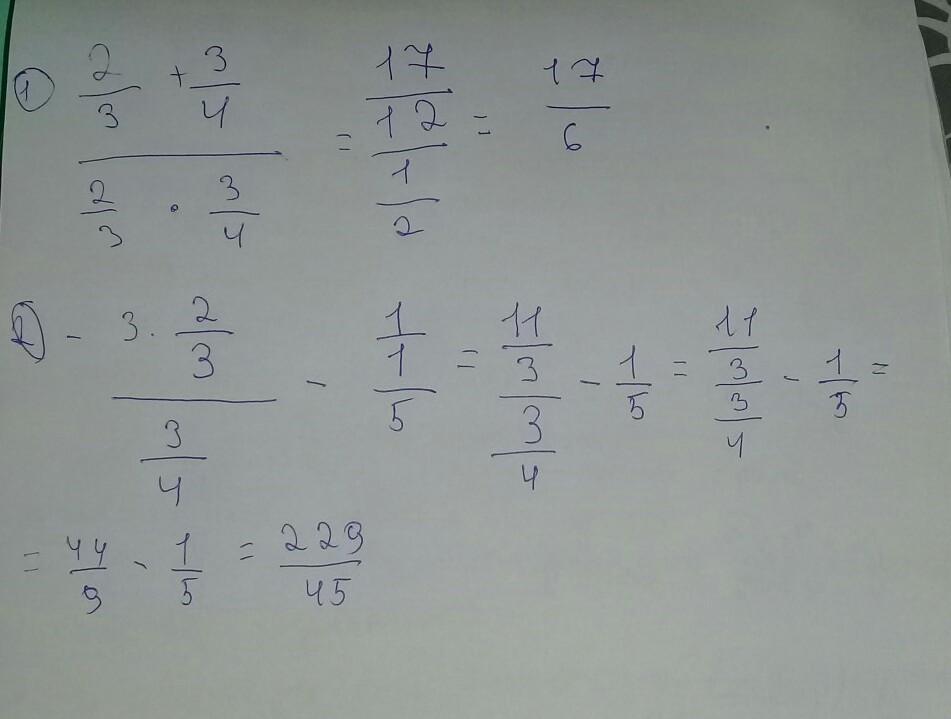 ① (2/3 + 3/4)/(2/3 · 3/4) = (17/12)/(1/2) = 17/6
② - (3 · 2/3)/(3/4) - 1/1/5 = (11/3)/(3/4) - 1/5 = (11/3)/(3/4) - 1/5 =
= 44/9 - 1/5 = 229/45